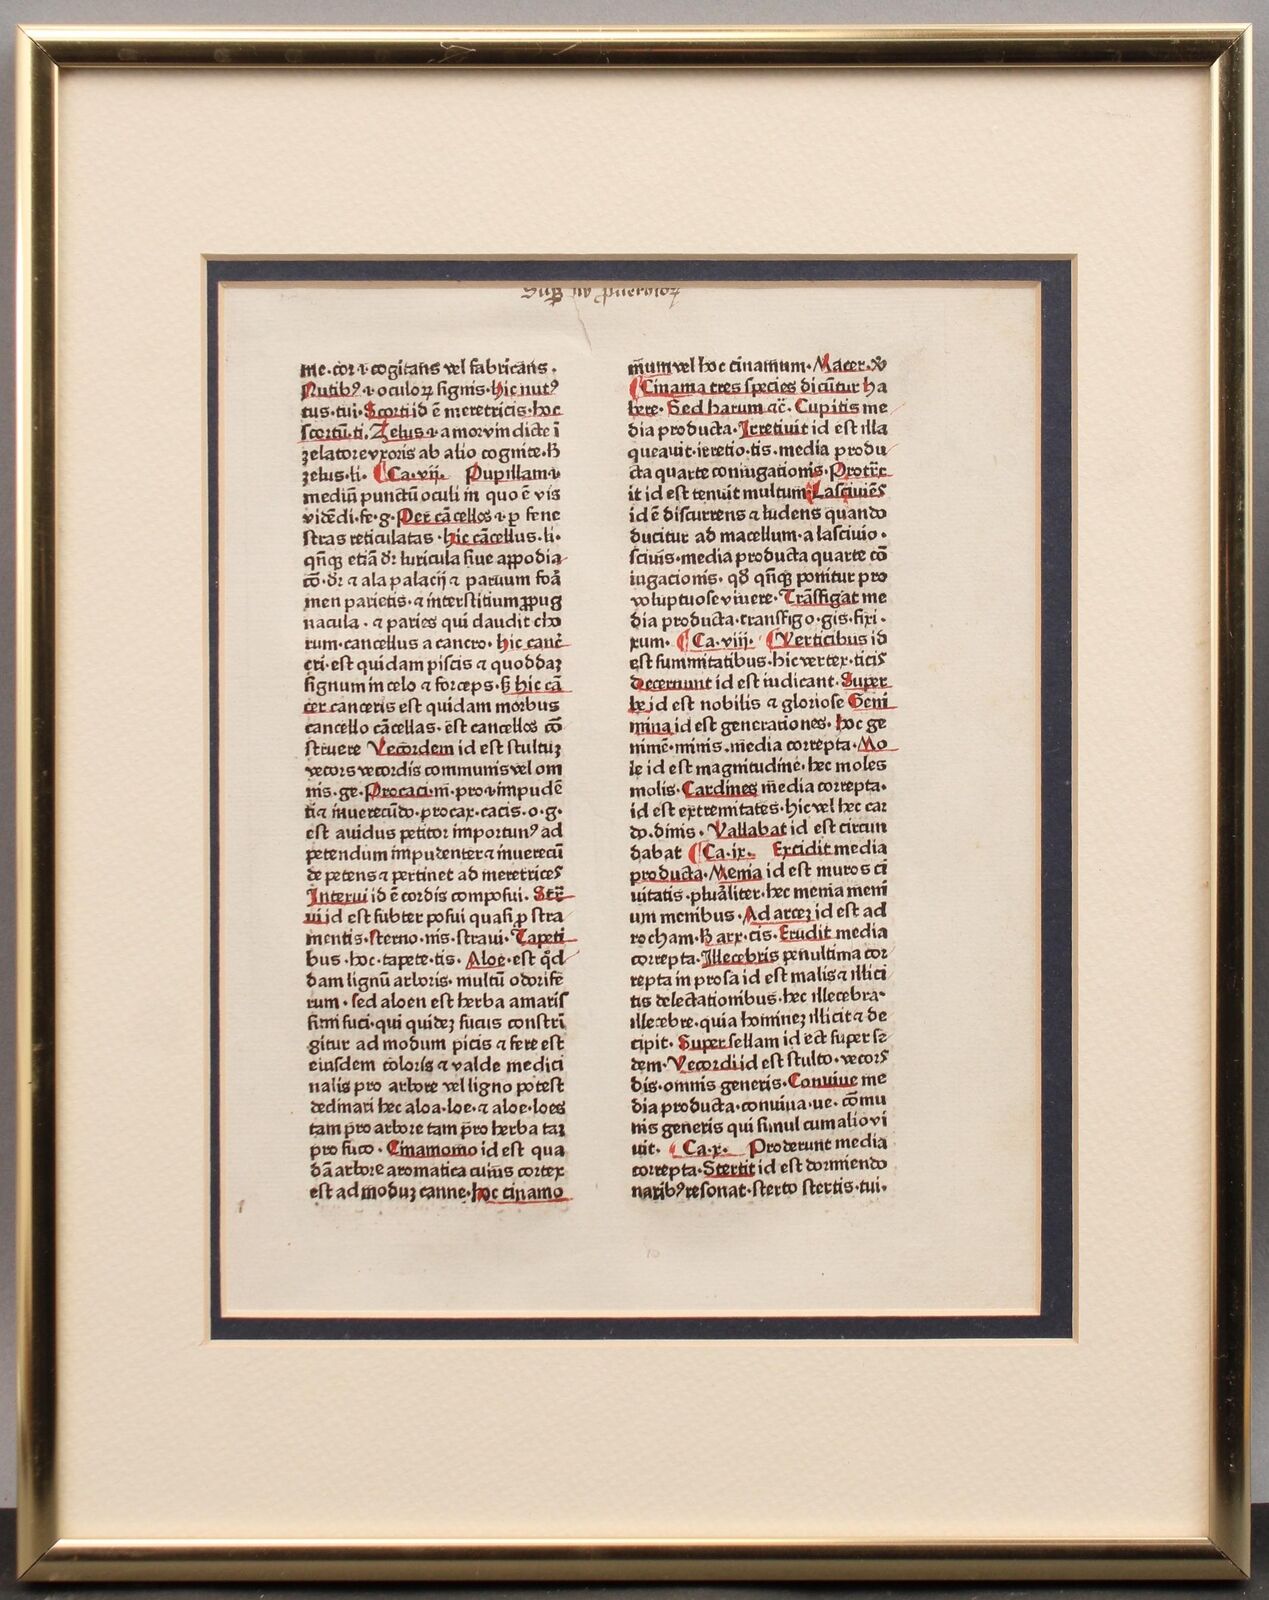 Sup li° ꝓuerbioꝝ
me·cor ⁊ cogitans vel fabricans·
Nutibꝰ·⁊·oculoꝝ signis·hic nutꝰ
tus·tui·Scorti id ē meretricis·hoc
scortū·ti·Zelus·⁊·amor vindicte ī
zelatore vxoris ab alio cognite·
zelus·li· Ca·vij· Pupillam·⁊·
mediū punctū oculi in quo ē vis
vidēdi·fe·g·Per cācellos·⁊·ꝑ fene
stras reticulatas·hic cācellus·li·
qn̄qꝫ etiā dr̄ turricula siue appodia
cō·dr̄ ⁊ ala palacij ⁊ paruum forā
men parietis·⁊ interstitium ꝓpug
nacula·⁊ paries qui claudit cho
rum·cancellus a cancro·hic canc̄
cri·est quidam piscis ⁊ quoddaꝫ
signum in celo ⁊ forceps· hic cā
cer canceris est quidam morbus
cancello cācellas·est cancellos cō
struere Vecordem id est stultuꝫ
vecors vecordis communis vel om
nis·ge·Procaci·ni·pro·⁊·impudē
ti ⁊ inuerecūdo·procax·cacis·o·g·
est auidus petitor importunꝰ ad
petendum impudenter ⁊ inuerecū
de petens ⁊ pertinet ad meretrices
Intexui id ē cordis composui·Str̄
ui id est subter posui quasi ꝓ stra
mentis·sterno·nis·straui·Tapeti
bus·hoc·tapete·tis·Aloe·est qd̄
dam lignū arboris·multū odorife
rum·sed aloen est herba amaris
simi suci·qui quideꝫ sucus constri
gitur ad modum picis ⁊ fere est
eiusdem coloris ⁊ valde medici
nalis pro arbore vel ligno potest
declinari hec aloa·loe·⁊ aloe·loes
tam pro arbore tam pro herba taꝫ
pro suco·Cinamomo id est qua
dā arbore aromatica cuius cortex
est ad moduꝫ canne·hoc cinamo
mum vel hoc cinamum·Macer·
Cinama tres species dicūtur ha
bere·Sed harum ac̄·Cupitis me
dia producta·Irretiuit id est illa
queauit·irretio·tis·media produ
cta quarte coniugationis·Protr̄c
it id est tenuit multum Lasciuiēs
id ē discurrens ⁊ ludens quando
ducitur ad macellum·a lasciuio·
sciuis·media producta quarte cō
iugacionis·qd̄ qn̄qꝫ ponitur pro
voluptuose viuere·Trāsfigat me
dia producta·transfigo·gis·fixi·
xum· Ca·viij· Verticibus id
est summitatibus·hic vertex·ticis
decernunt id est iudicant·Super
be id est nobilis ⁊ gloriose Geni
mina id est generationes·hoc ge
nimē·minis·media correpta·Mo
le id est magnitudine·hec moles
molis·Cardines media correpta·
id est extremitates·hic vel hec car
do·dinis·Vallabat id est circun
dabat Ca·ix· Excidit media
producta·Menia id est muros ci
uitatis·pluraliter·hec menia meni
um menibus·Ad arceꝫ id est ad
rocham· arx·cis·Erudit media
correpta·Illecebris penultima cor
repta in prosa id est malis ⁊ illici
tis delectationibus·hec illecebra·
illecebre·quia homineꝫ illicit ⁊ de
cipit·Super sellam id est super se
dem·Vecordi id est stulto·vecors
dis·omnis generis·Conuiue me
dia producta·conuiua·ue·cōmu
nis generis qui simul cum alio vi
uit· Ca·x· Proderunt media
correpta·Stertit id est dormiendo
naribꝰ resonat·sterto stertis·tui·
10